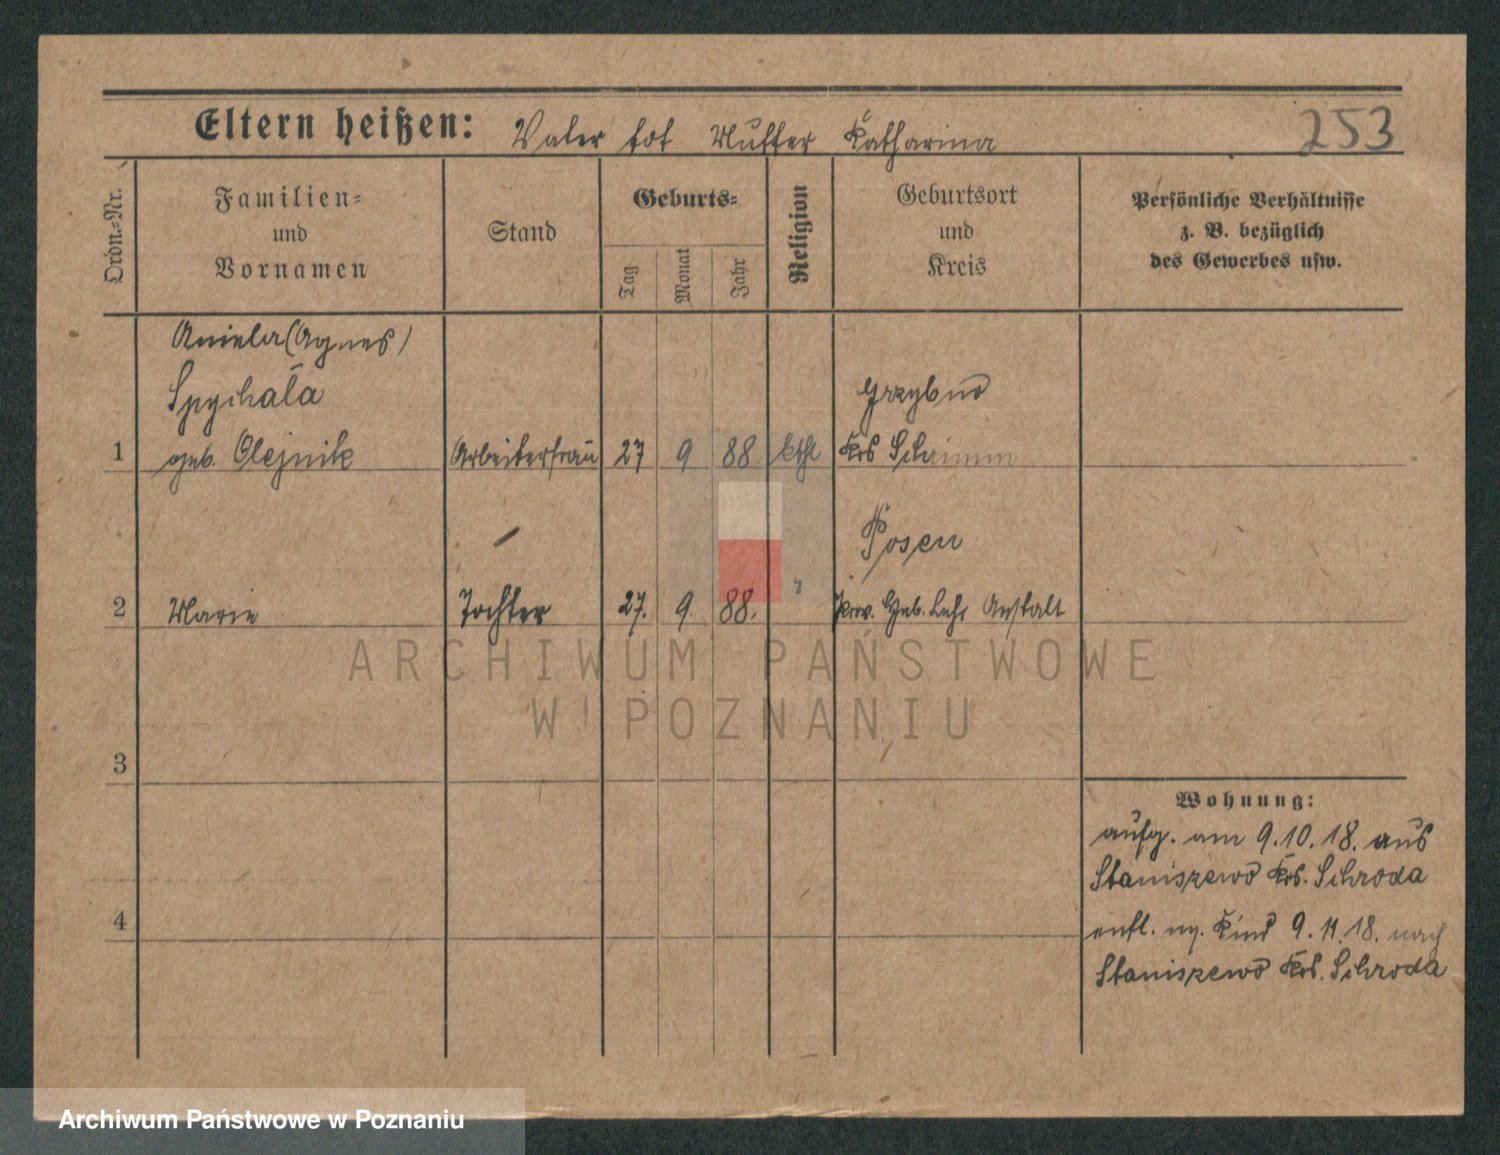 Eltern heißen: Vater tot Mutter Katharina
253
Ordn.-Nr.
Familien-
und
Vornamen
Stand
Geburts-
Tag
Monat
Jahr
Religion
Geburtsort
und
Kreis
Persönliche Verhältnisse
z. B. bezüglich
des Gewerbes usw.
Aniela (Agnes)
Spychala
1 geb. Olejnik Arbeiterfrau 27 9 88 kthl Krs Schrimm
Posen
2 Marie Tochter 27. 9. 88. " Prov. Heb. Lehr Anstalt
ARCHIWUM PAŃSTWOWE
W POZNANIU
3
Wohnung:
aufg. am 9.10.18. aus
Staniszewo Krs. Schroda
4
entl. m. Kind 9.11.18. nach
Staniszewo Krs. Schroda
Archiwum Państwowe w Poznaniu